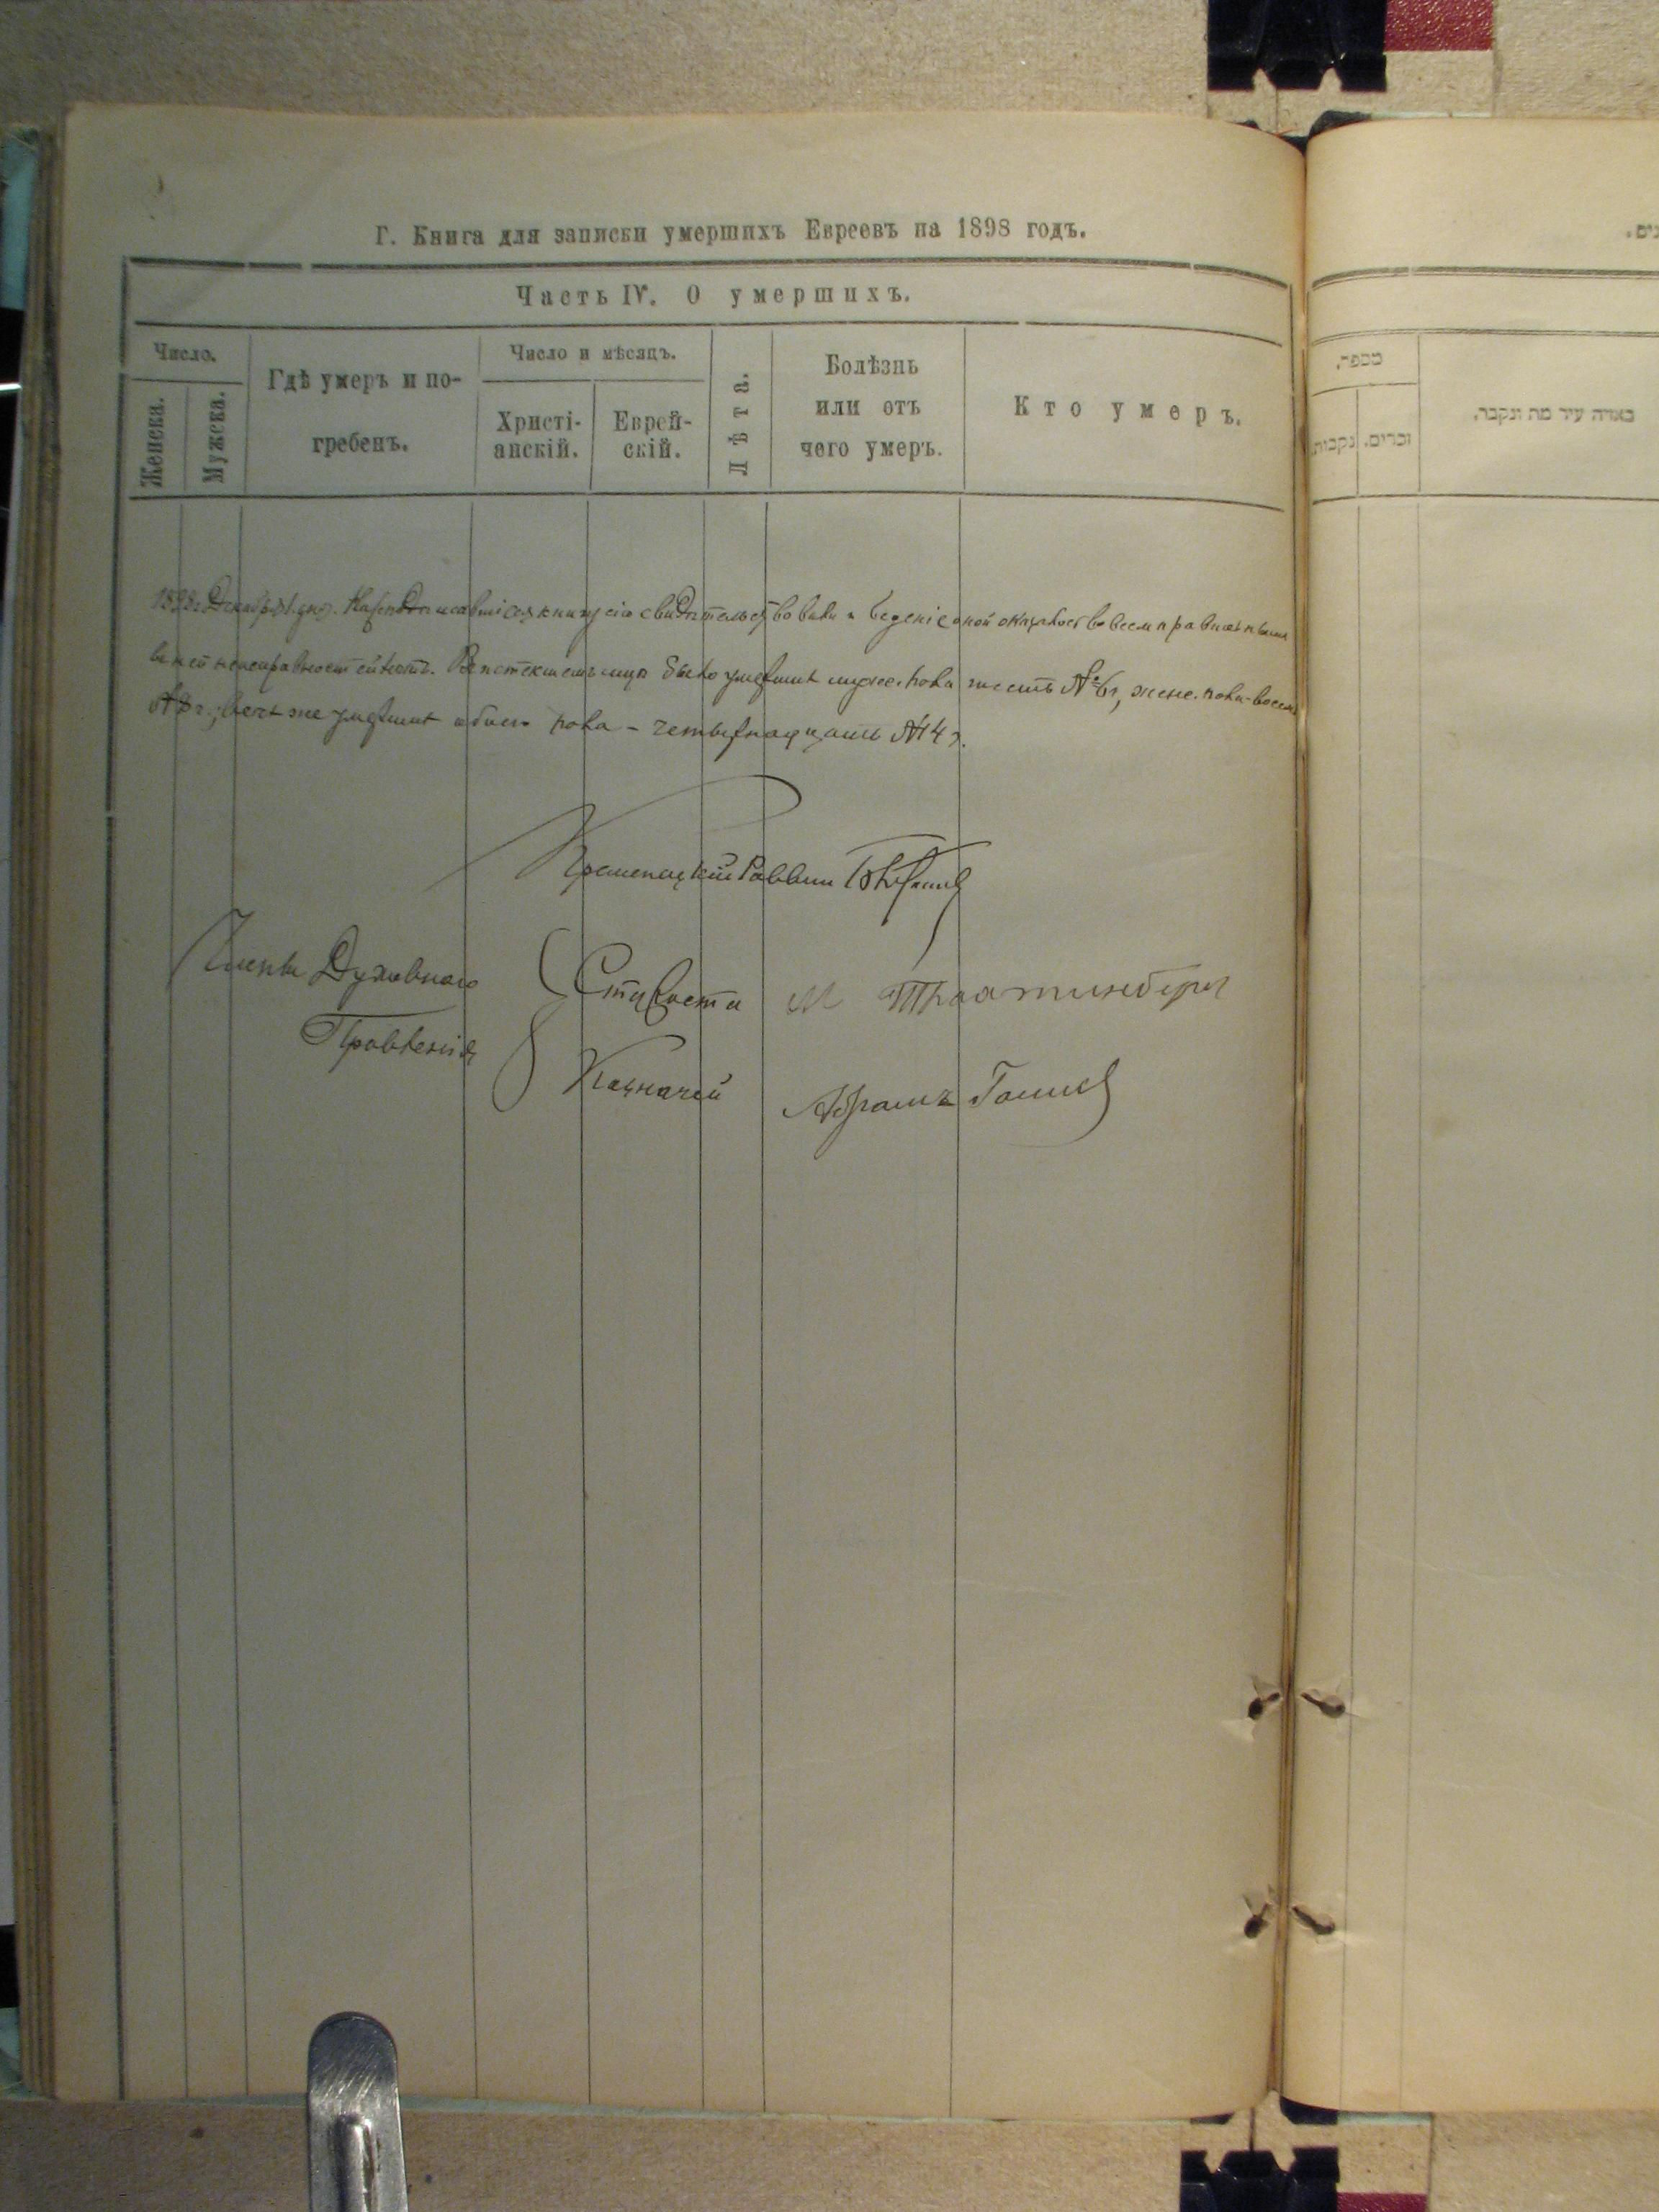 Г. Книга для записки умершихъ Евреевъ на 1898 годъ.
Часть IV. О умершихъ.
Число.
Женска.
Мужска.
Гдѣ умеръ и по-
гребенъ.
Число и мѣсяцъ.
Христі-
анскій.
Еврей-
скій.
Лѣта.
Болѣзнь
или отъ
чего умеръ.
Кто умеръ.
1898 г. Декабря 31 дня. книгу сію свидѣтельствовали и веденіе оной оказалось во всемъ правильнымъ
неисправностей нѣтъ. Въ истекшемъ м-цѣ было умершихъ мужес. пола шесть №6, женс. пола восемь
№8, всего же умершихъ обоего пола – четырнадцать №14.
Кременецкій Раввинъ
Члены Духовнаго
Правленія
Староста М
Казначей Абрамъ
מספר.
זכרים.
נקבות
באיזה עיר מת ונקבר.